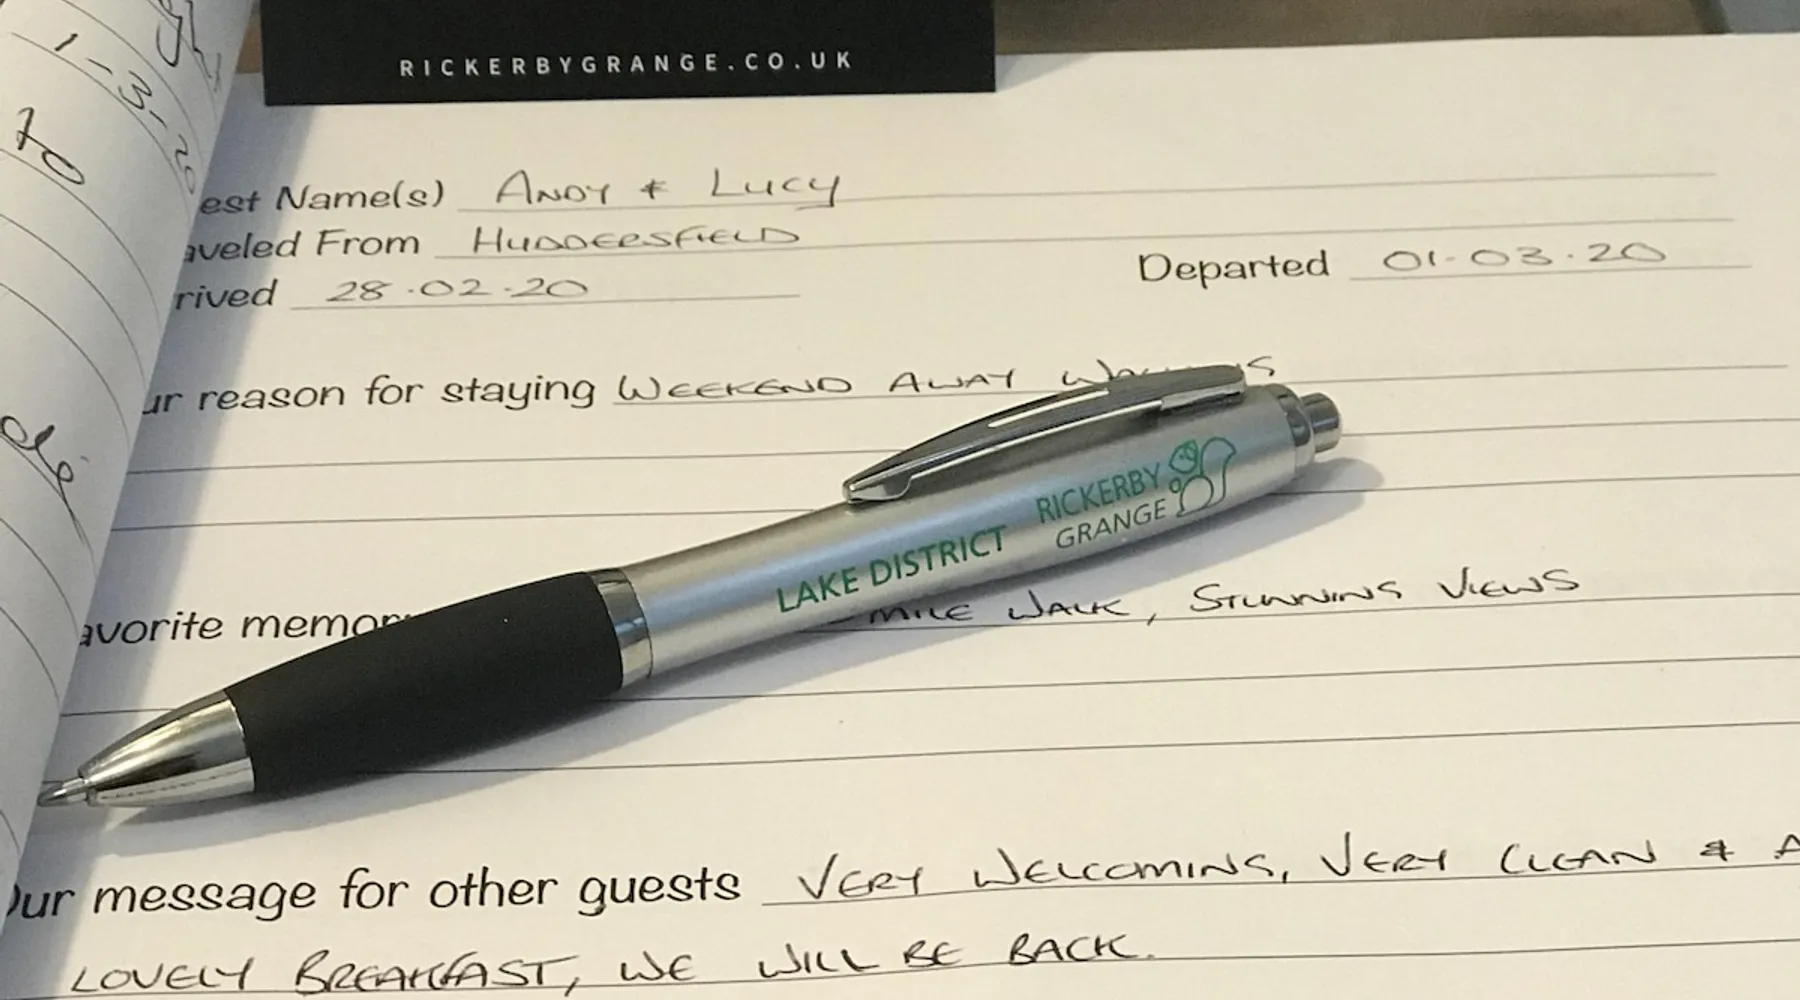 RICKERBYGRANGE.CO.UK
1-3-20
to
est Name(s) ANDY & LUCY
aveled From HUDDERSFIELD
rived 28.02.20 Departed 01.03.20
ur reason for staying WEEKEND AWAY
LAKE DISTRICT RICKERBY GRANGE
avorite memor MILE WALK, STUNNING VIEWS
Our message for other guests VERY WELCOMING, VERY CLEAN & A
LOVELY BREAKFAST, WE WILL BE BACK.